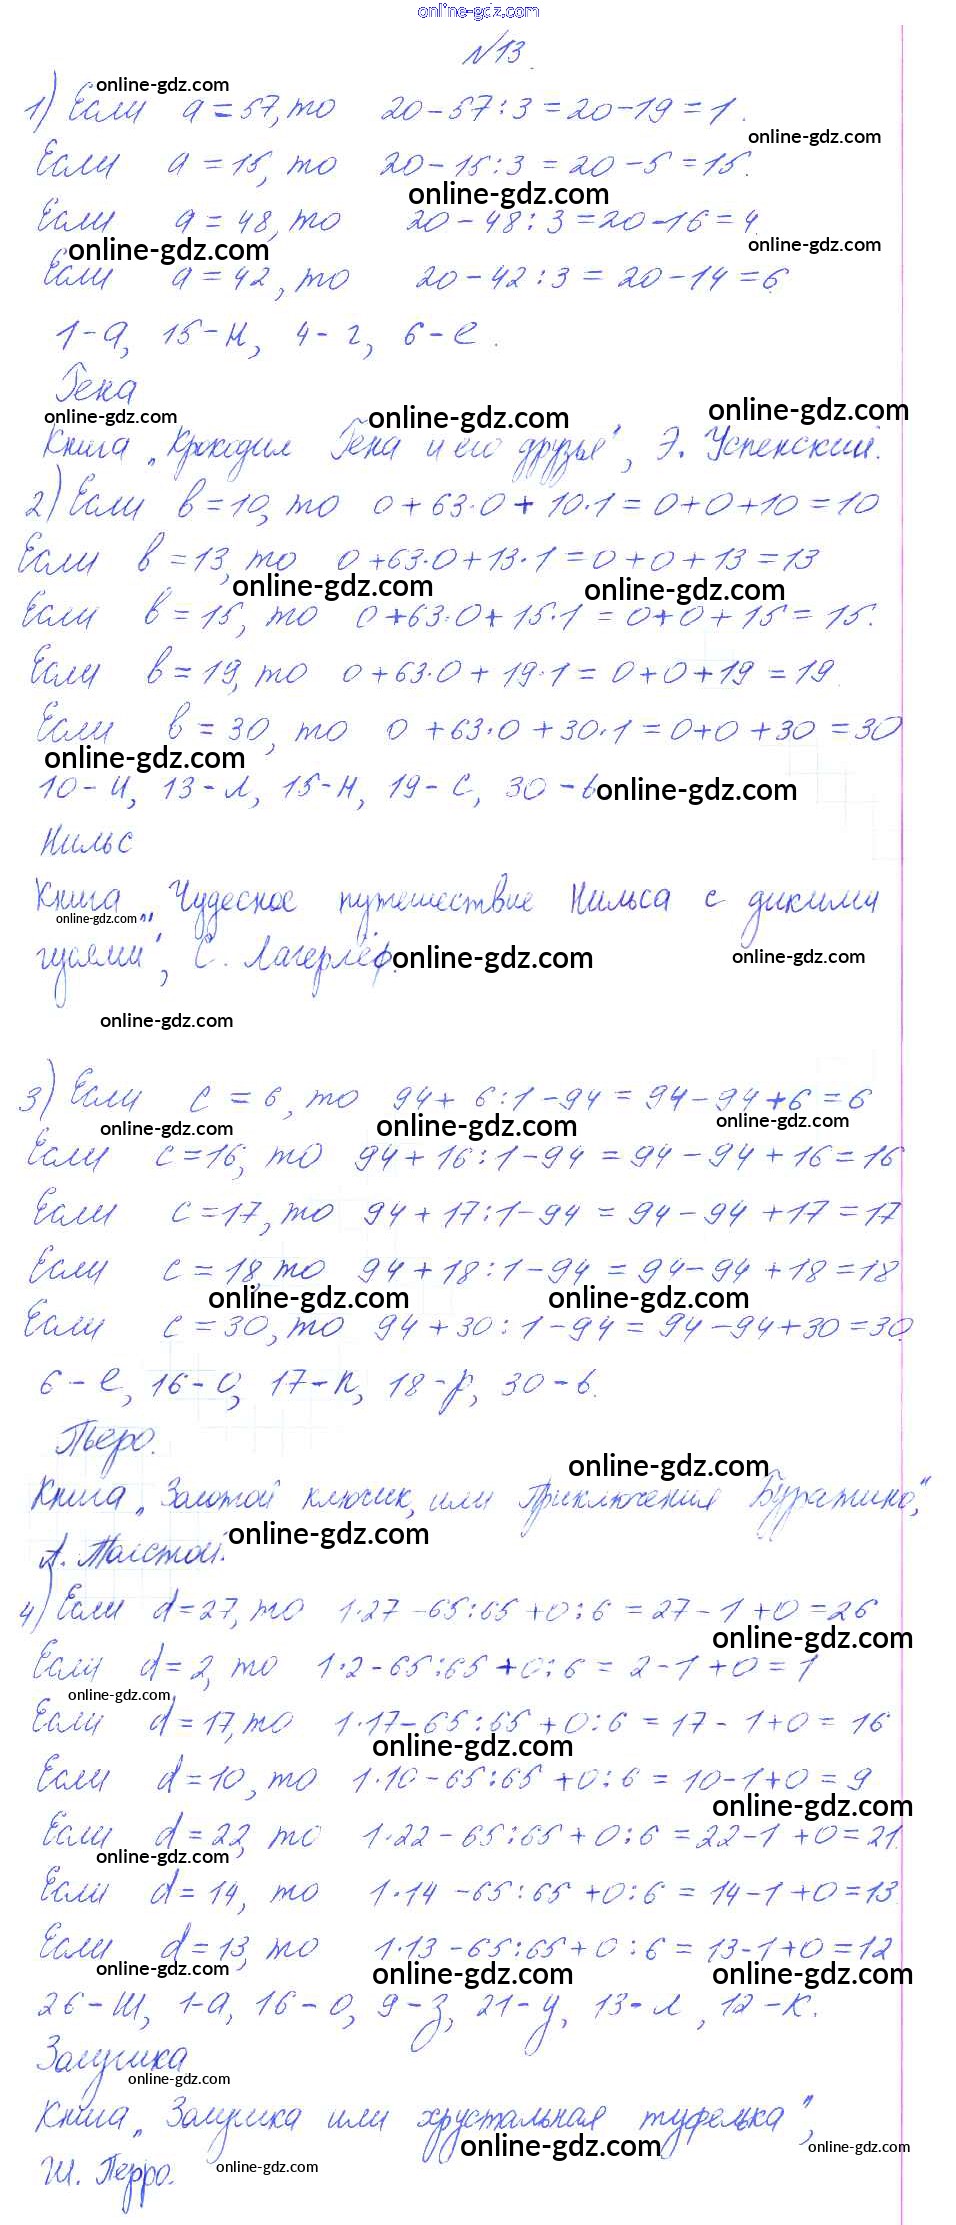 online-gdz.com
N13.
online-gdz.com
1) Если a = 57, то 20 - 57 : 3 = 20 - 19 = 1.
online-gdz.com
Если a = 15, то 20 - 15 : 3 = 20 - 5 = 15.
online-gdz.com
Если a = 48, то 20 - 48 : 3 = 20 - 16 = 4.
online-gdz.com online-gdz.com
Если a = 42, то 20 - 42 : 3 = 20 - 14 = 6.
1 - а, 15 - н, 4 - г, 6 - е.
Гена
online-gdz.com online-gdz.com online-gdz.com
Книга „Крокодил Гена и его друзья“, Э. Успенский.
2) Если b = 10, то 0 + 63·0 + 10·1 = 0 + 0 + 10 = 10
Если b = 13, то 0 + 63·0 + 13·1 = 0 + 0 + 13 = 13
online-gdz.com online-gdz.com
Если b = 15, то 0 + 63·0 + 15·1 = 0 + 0 + 15 = 15.
Если b = 19, то 0 + 63·0 + 19·1 = 0 + 0 + 19 = 19.
Если b = 30, то 0 + 63·0 + 30·1 = 0 + 0 + 30 = 30
online-gdz.com
10 - и, 13 - л, 15 - н, 19 - с, 30 - ь online-gdz.com
Нильс
Книга „Чудесное путешествие Нильса с дикими
online-gdz.com
гусями“, С. Лагерлёф. online-gdz.com online-gdz.com
online-gdz.com
3) Если c = 6, то 94 + 6 : 1 - 94 = 94 - 94 + 6 = 6
online-gdz.com online-gdz.com online-gdz.com
Если c = 16, то 94 + 16 : 1 - 94 = 94 - 94 + 16 = 16
Если c = 17, то 94 + 17 : 1 - 94 = 94 - 94 + 17 = 17
Если c = 18, то 94 + 18 : 1 - 94 = 94 - 94 + 18 = 18
online-gdz.com online-gdz.com
Если c = 30, то 94 + 30 : 1 - 94 = 94 - 94 + 30 = 30.
6 - е, 16 - о, 17 - п, 18 - р, 30 - ь.
Пьеро.
online-gdz.com
Книга „Золотой ключик, или Приключения Буратино“,
online-gdz.com
А. Толстой.
4) Если d = 27, то 1·27 - 65:65 + 0:6 = 27 - 1 + 0 = 26
online-gdz.com
Если d = 2, то 1·2 - 65:65 + 0:6 = 2 - 1 + 0 = 1
online-gdz.com
Если d = 17, то 1·17 - 65:65 + 0:6 = 17 - 1 + 0 = 16
online-gdz.com
Если d = 10, то 1·10 - 65:65 + 0:6 = 10 - 1 + 0 = 9
online-gdz.com
Если d = 22, то 1·22 - 65:65 + 0:6 = 22 - 1 + 0 = 21.
online-gdz.com
Если d = 14, то 1·14 - 65:65 + 0:6 = 14 - 1 + 0 = 13.
Если d = 13, то 1·13 - 65:65 + 0:6 = 13 - 1 + 0 = 12
online-gdz.com online-gdz.com online-gdz.com
26 - ш, 1 - а, 16 - о, 9 - з, 21 - у, 13 - л, 12 - к.
Золушка
online-gdz.com
Книга „Золушка или хрустальная туфелька“,
online-gdz.com online-gdz.com
Ш. Перро. online-gdz.com